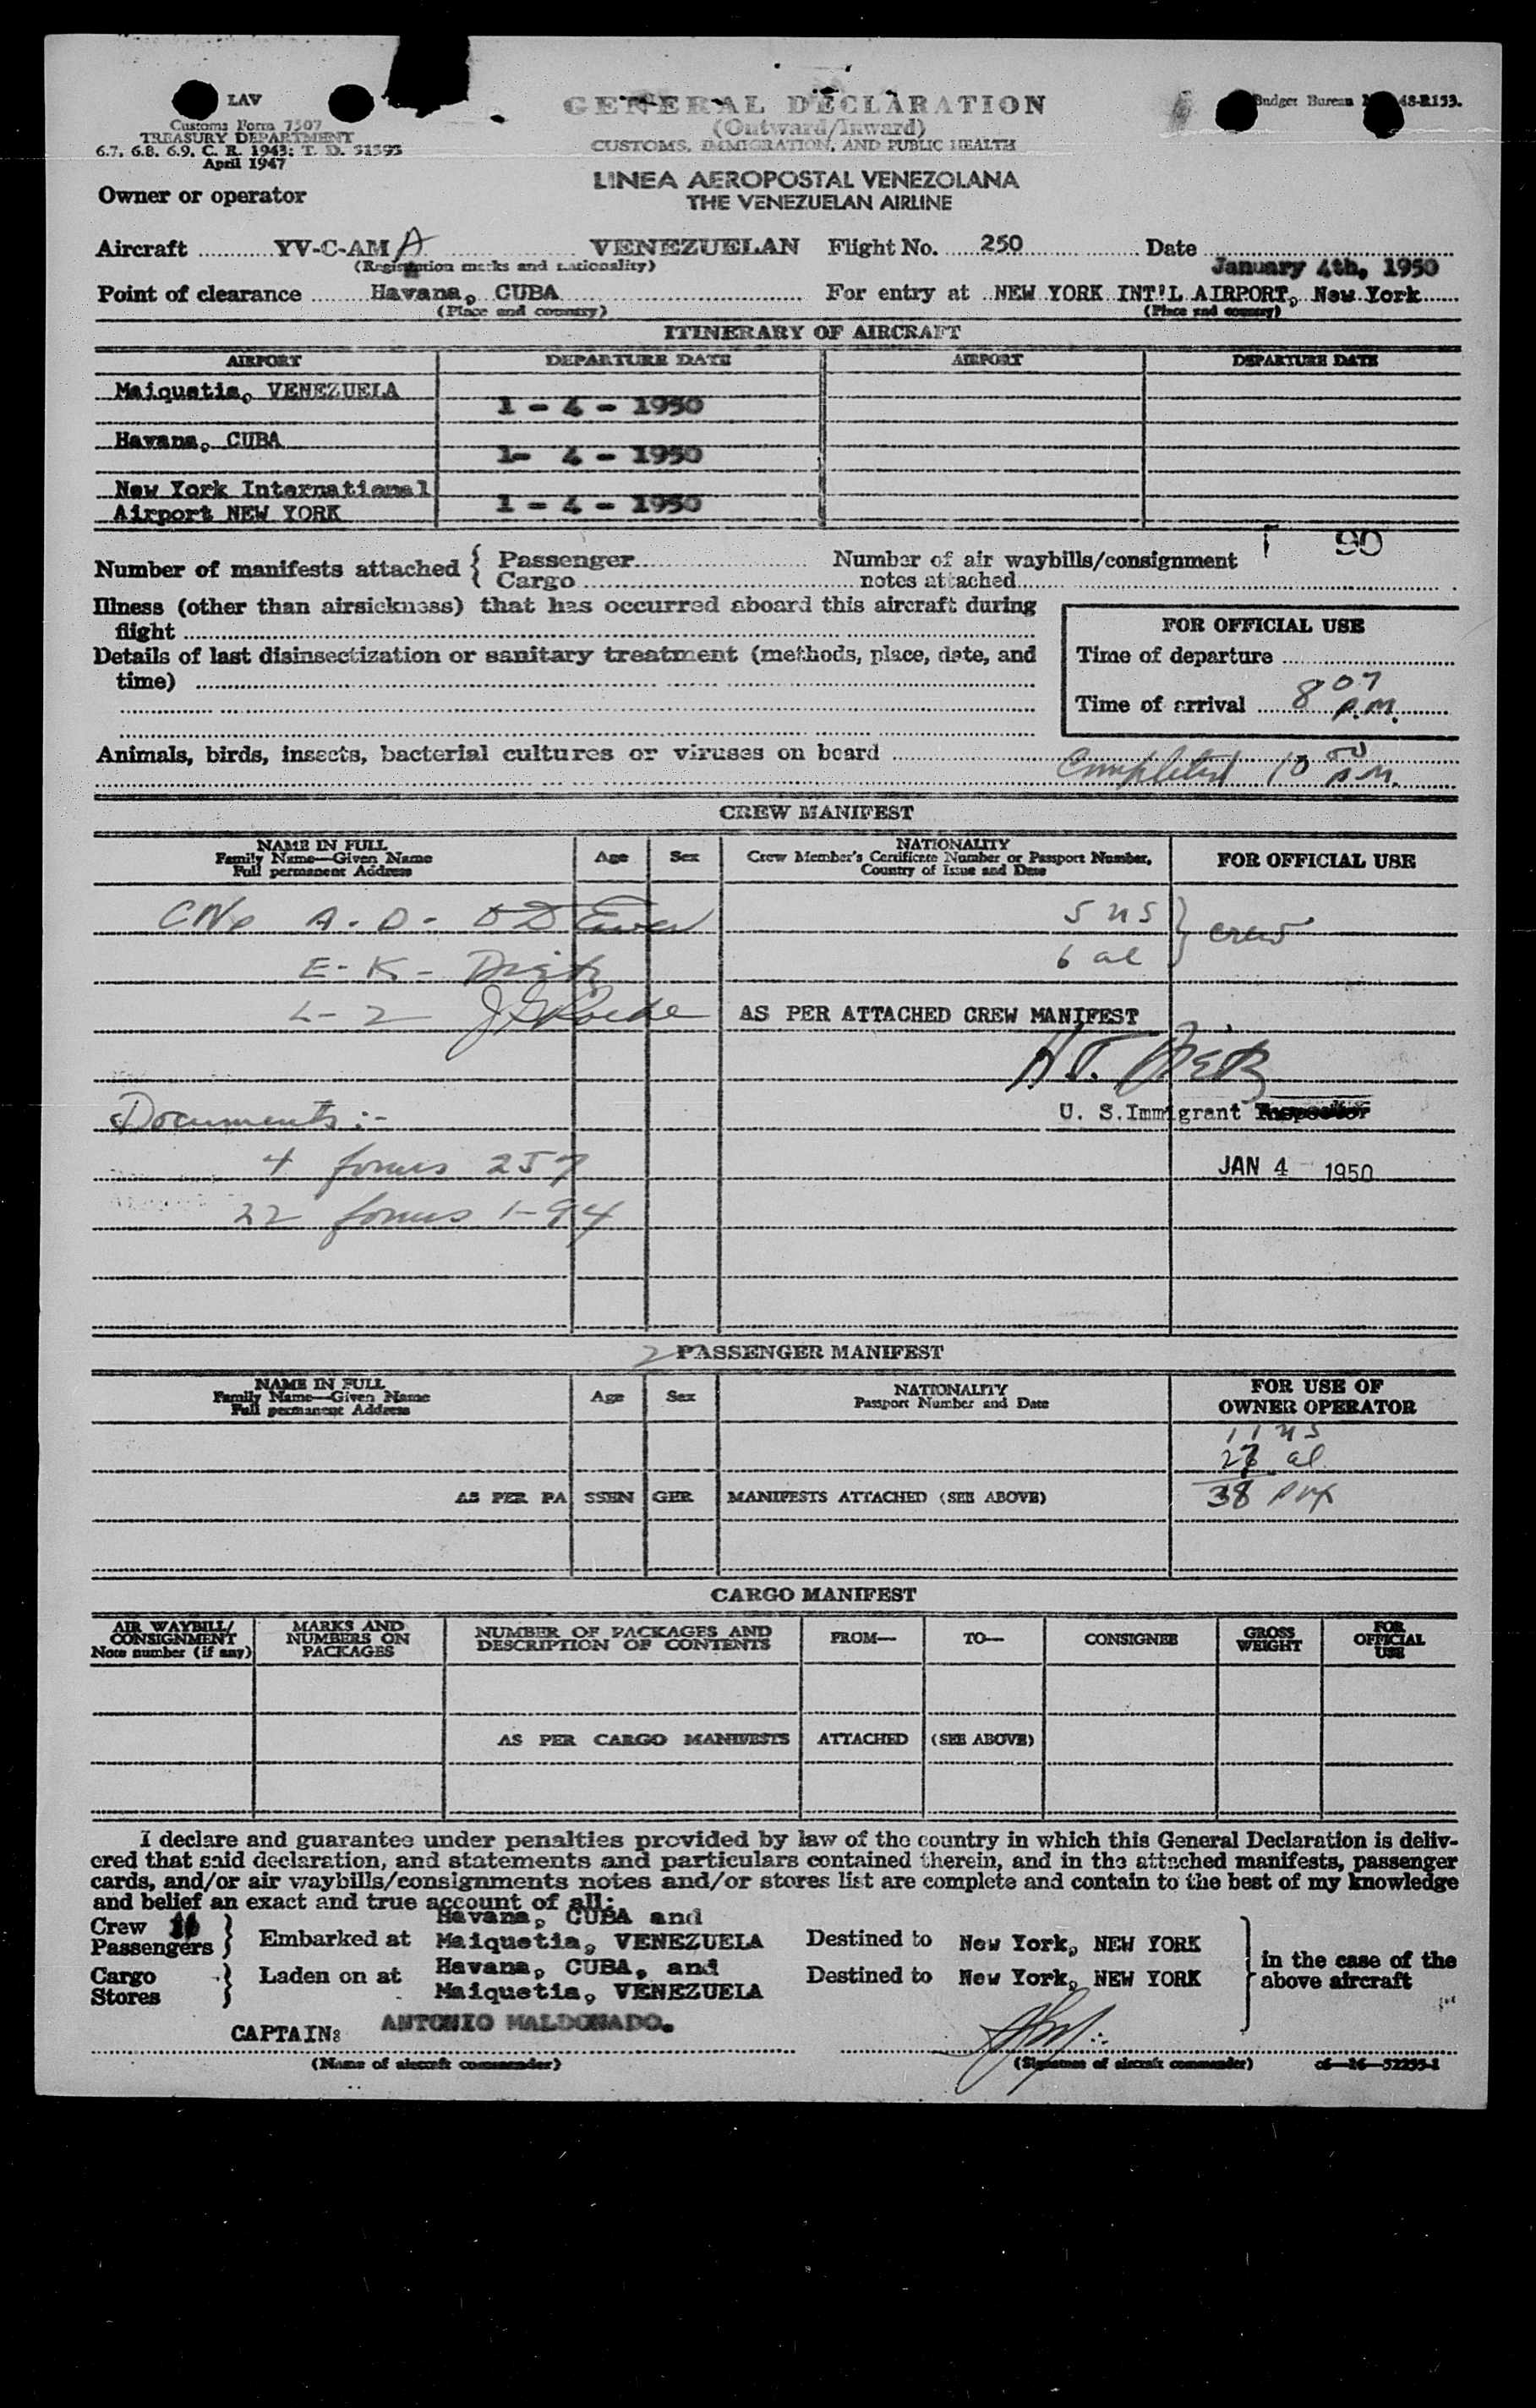 LAV
Customs Form 7507
TREASURY DEPARTMENT
6.7, 6.8, 6.9, C. R. 1943; T. D. 51595
April 1947
GENERAL DECLARATION
(Outward/Inward)
CUSTOMS, IMMIGRATION, AND PUBLIC HEALTH
Budget Bureau 48-R153.
LINEA AEROPOSTAL VENEZOLANA
THE VENEZUELAN AIRLINE
Owner or operator
Aircraft YV-C-AMA VENEZUELAN Flight No. 250 Date January 4th, 1950
(Registration marks and nationality)
Point of clearance Havana, CUBA For entry at NEW YORK INT'L AIRPORT, New York
(Place and country) (Place and country)
ITINERARY OF AIRCRAFT
AIRPORT DEPARTURE DATE AIRPORT DEPARTURE DATE
Maiquetia, VENEZUELA
1 - 4 - 1950
Havana, CUBA
1- 4 - 1950
New York International
Airport NEW YORK 1 - 4 - 1950
90
Number of manifests attached { Passenger Number of air waybills/consignment
Cargo notes attached
Illness (other than airsickness) that has occurred aboard this aircraft during
flight
Details of last disinsectization or sanitary treatment (methods, place, date, and
time)
FOR OFFICIAL USE
Time of departure
Time of arrival 8 07 P.M.
Animals, birds, insects, bacterial cultures or viruses on board
Completed 10 00 P.M.
CREW MANIFEST
NAME IN FULL
Family Name—Given Name
Full permanent Address
Age Sex
NATIONALITY
Crew Member's Certificate Number or Passport Number,
Country of Issue and Date
FOR OFFICIAL USE
A - O - 5 US } crew
E - K - Dietz 6 al
L - Z AS PER ATTACHED CREW MANIFEST
H J. Dietz
Documents :- U. S. Immigrant Inspector
4 forms 257 JAN 4 1950
22 forms I-94
2 PASSENGER MANIFEST
NAME IN FULL
Family Name—Given Name
Full permanent Address
Age Sex
NATIONALITY
Passport Number and Date
FOR USE OF
OWNER OPERATOR
11 US
27 al
AS PER PASSENGER MANIFESTS ATTACHED (SEE ABOVE) 38 pax
CARGO MANIFEST
AIR WAYBILL/
CONSIGNMENT
Note number (if any)
MARKS AND
NUMBERS ON
PACKAGES
NUMBER OF PACKAGES AND
DESCRIPTION OF CONTENTS
FROM— TO— CONSIGNEE
GROSS
WEIGHT
FOR
OFFICIAL
USE
AS PER CARGO MANIFESTS ATTACHED (SEE ABOVE)
I declare and guarantee under penalties provided by law of the country in which this General Declaration is deliv-
ered that said declaration, and statements and particulars contained therein, and in the attached manifests, passenger
cards, and/or air waybills/consignments notes and/or stores list are complete and contain to the best of my knowledge
and belief an exact and true account of all:
Crew 11
Passengers } Embarked at Havana, CUBA and
Maiquetia, VENEZUELA Destined to New York, NEW YORK
Cargo
Stores } Laden on at Havana, CUBA, and
Maiquetia, VENEZUELA Destined to New York, NEW YORK
in the case of the
above aircraft
CAPTAIN: ANTONIO MALDONADO.
(Name of aircraft commander) (Signature of aircraft commander) c6—16—52255-1